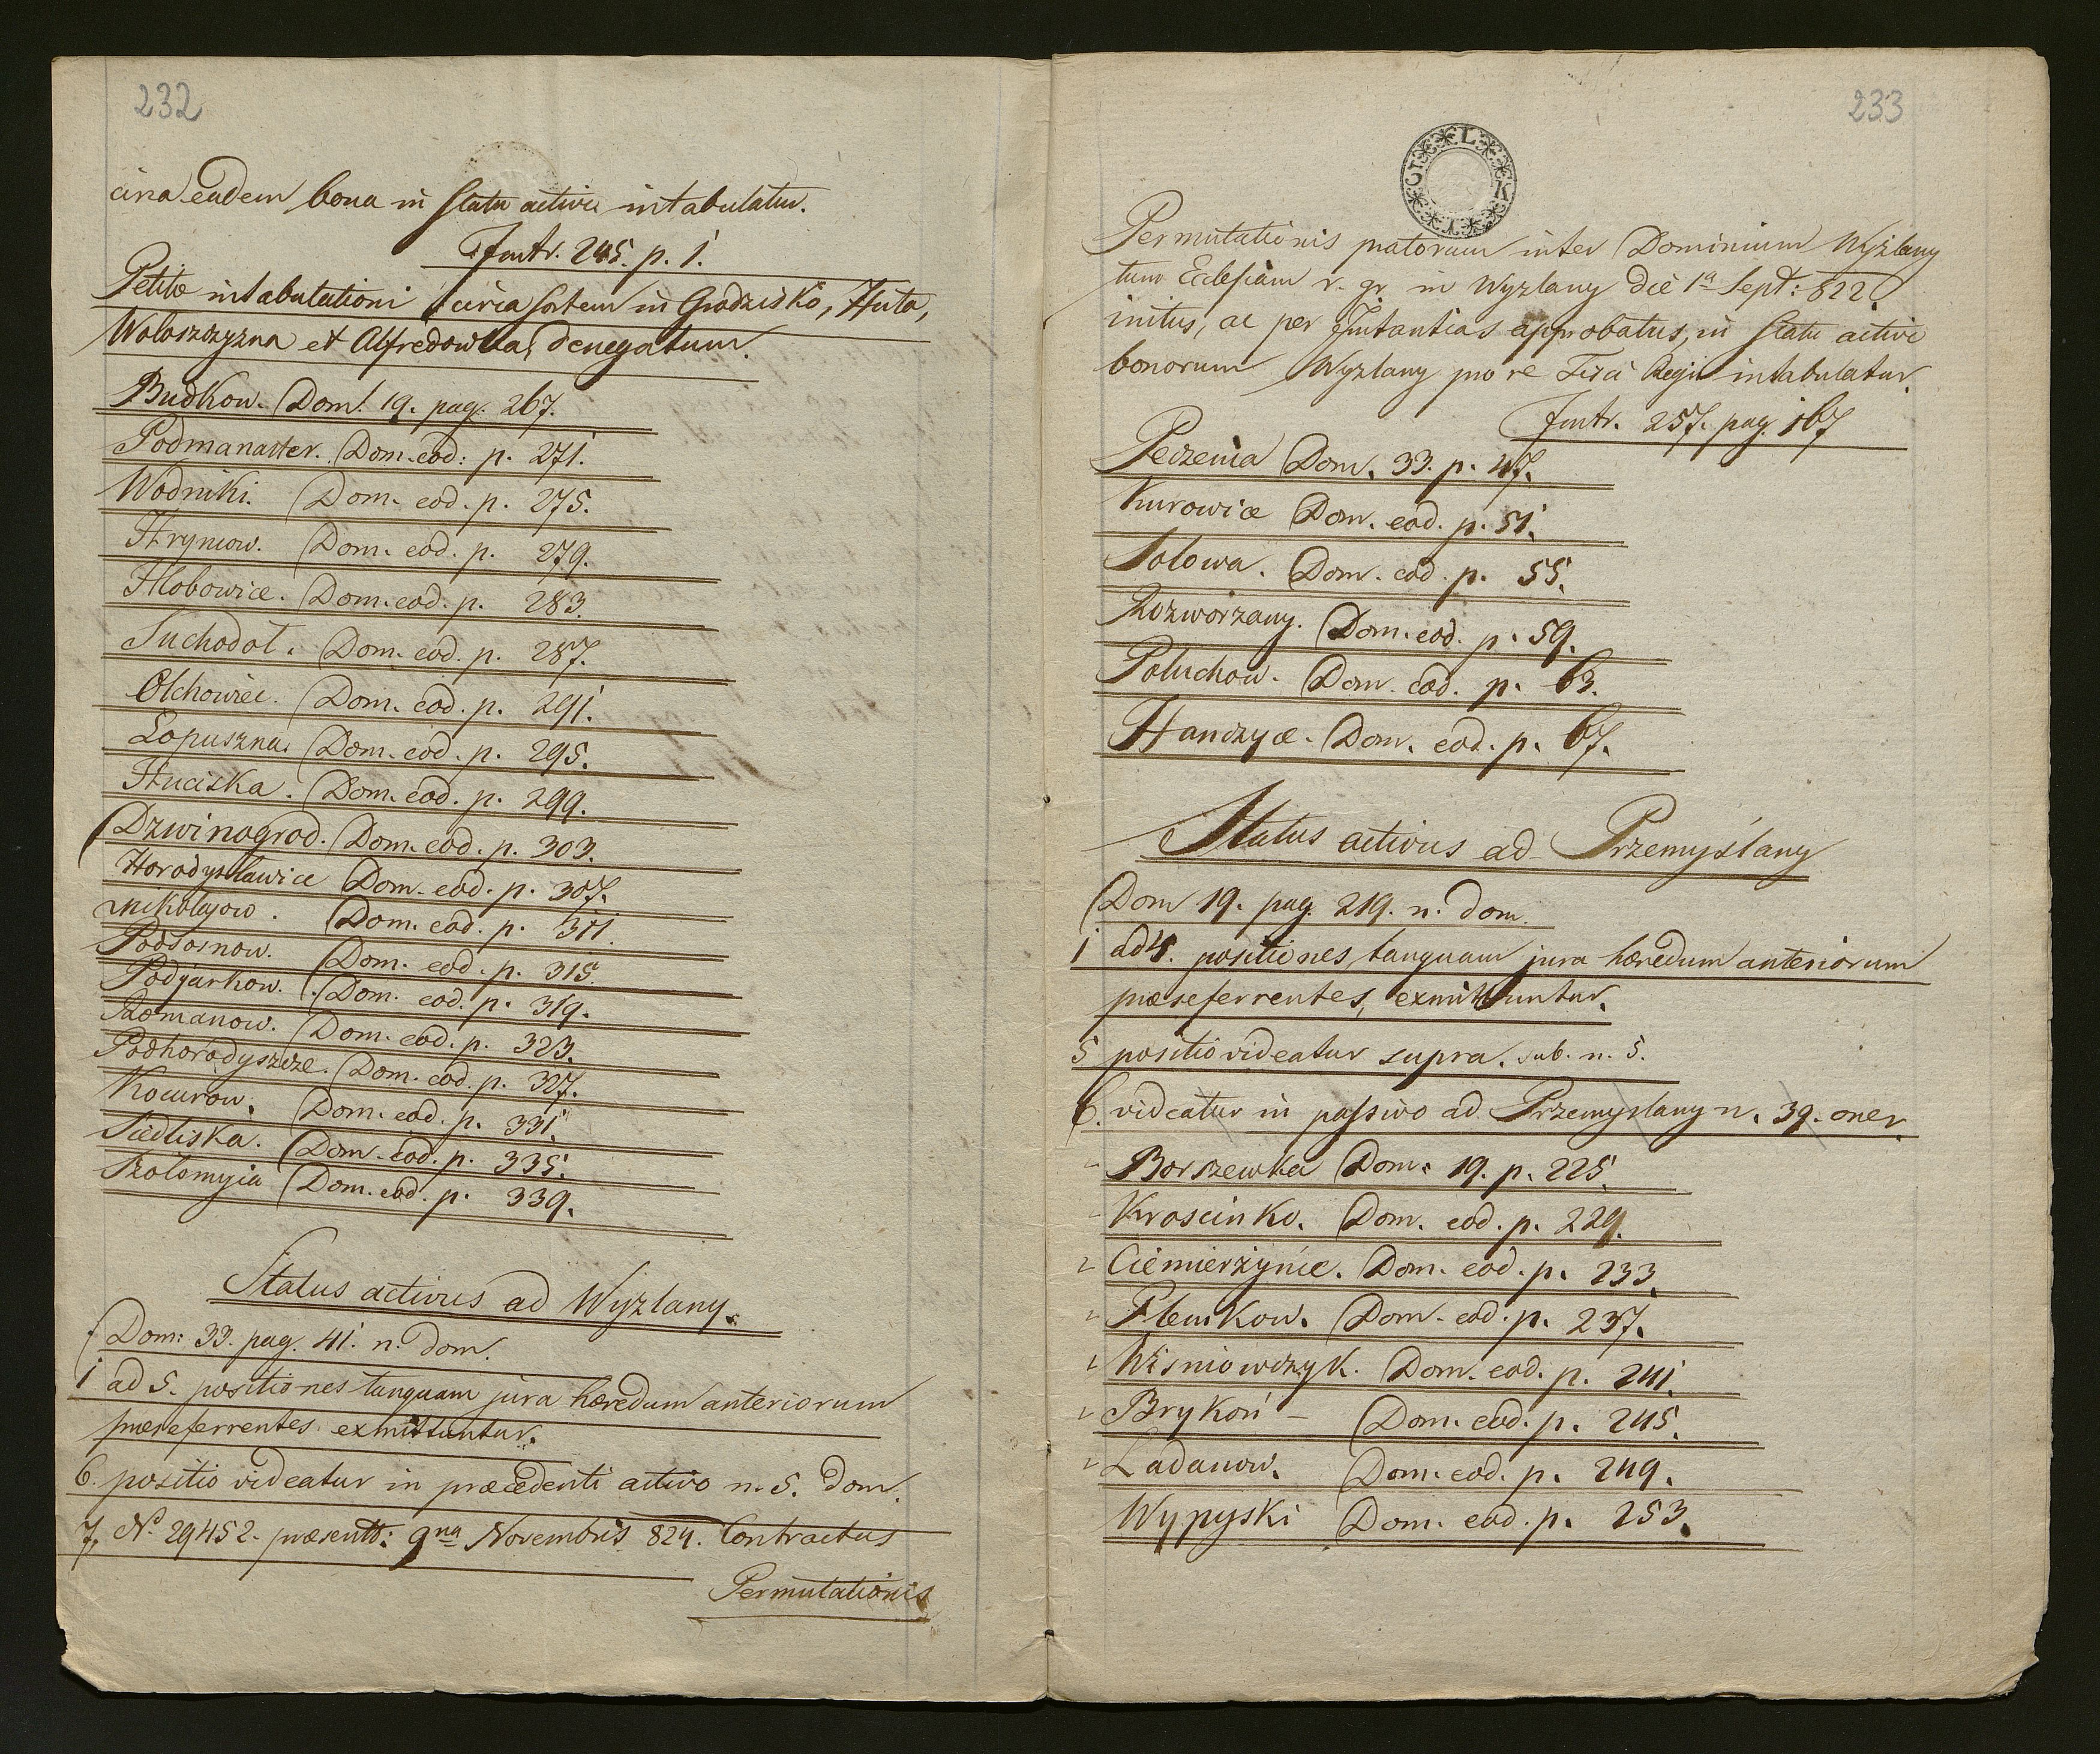 232
circa eadem bona in Statu activo intabulatur.
Instr. 245. p. 1.
Petitæ intabulationi circa sortem in Grodzisko, Huta,
Woloszczyzna et Alfredowka, denegatum.
Budkow. Dom. 19. pag. 267.
Podmanaster. Dom. eod: p. 271.
Wodniki. Dom. eod. p. 275.
Hryniow. Dom. eod. p. 279.
Hlobowice. Dom. eod. p. 283.
Suchodol. Dom. eod. p. 287.
Olchowiec. Dom. eod. p. 291.
Lopuszna. Dom. eod. p. 295.
Huciska. Dom. eod. p. 299.
Dzwinogrod. Dom. eod. p. 303.
Horodyslawice Dom. eod. p. 307.
Mikolajow. Dom. eod. p. 311.
Podsosnow. Dom. eod. p. 315.
Podjarkow. Dom. eod. p. 319.
Romanow. Dom. eod. p. 323.
Podhorodyszcze. Dom. eod. p. 327.
Kocurow. Dom. eod. p. 331.
Siedliska. Dom. eod. p. 335.
Kolomyia Dom. eod. p. 339.
Status activus ad Wyzlany.
Dom: 33. pag. 41. n. dom.
1 ad 5. positiones tanquam jura hæredum anteriorum
præseferrentes exmittuntur.
6. positio videatur in præcedenti activo n. 5. dom.
7. No 29452. præsentt: 9na Novembris 824. Contractus
Permutationis
233
Permutationis pratorum inter Dominium Wyżlany
tum Ecclesiam r. gr. in Wyzlany die 1a Sept: 822.
initus, ac per Instantias approbatus, in Statu activo
bonorum Wyzlany pro re Fisci Regii intabulatur.
Instr. 257. pag. 167
Peczenia Dom. 33. p. 47.
Kurowice Dom. eod. p. 51.
Solowa. Dom. eod. p. 55.
Rozworzany. Dom. eod. p. 59.
Poluchow. Dom. eod. p. 63.
Hanczyce. Dom. eod. p. 67.
Status activus ad Przemyślany
Dom 19. pag. 219. n. dom.
1 ad 4. positiones, tanquam jura hæredum anteriorum
præseferrentes, exmittuntur.
5 positio videatur supra. sub. n. 5.
6. videatur in passivo ad Przemyslany n. 39. oner.
Borszewka Dom. 19. p. 225.
Kroscinko. Dom. eod. p. 229.
Ciemierżynce. Dom. eod. p. 233.
Plenikow. Dom. eod. p. 237.
Wisniowczyk. Dom. eod. p. 241.
Brykoń - Dom. eod. p. 245.
Ladanow. Dom. eod. p. 249.
Wypyski Dom. eod. p. 253.